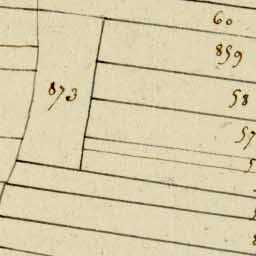 60
859
873
58
57